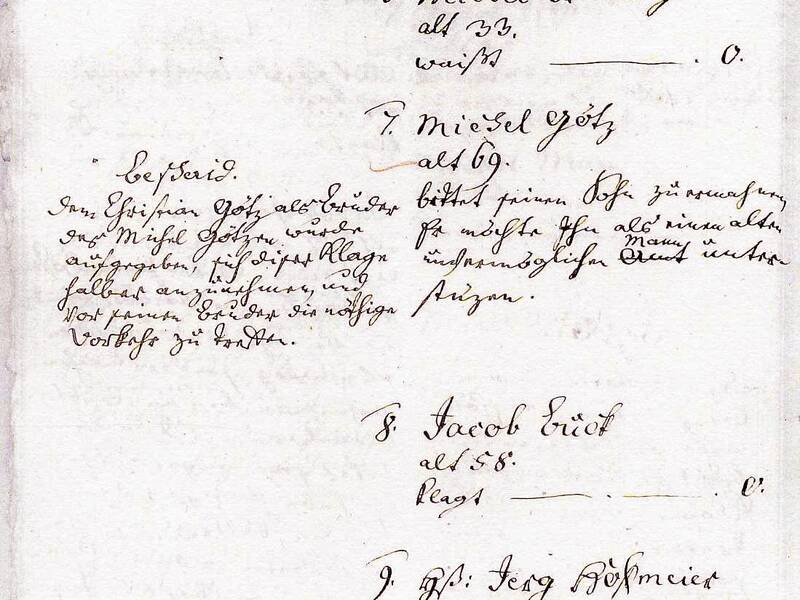 alt 33.
waißt ——— . 0.
7. Michel Götz
alt 69.
bittet seinen Sohn zu ermahnen
Er möchte Ihn als einen alten
unvermöglichen Mann unter
stüzen.
Bescheid.
dem Christian Götz als Bruder
des Michel Götzen wurde
aufgegeben, sich diser Klage
halber anzunehmen, und
vor seinen Bruder die nöthige
Vorkehr zu treffen.
8. Jacob Buck
alt 58.
klagt ——— . ——— . 0.
9. Hß: Jerg Hofmeier